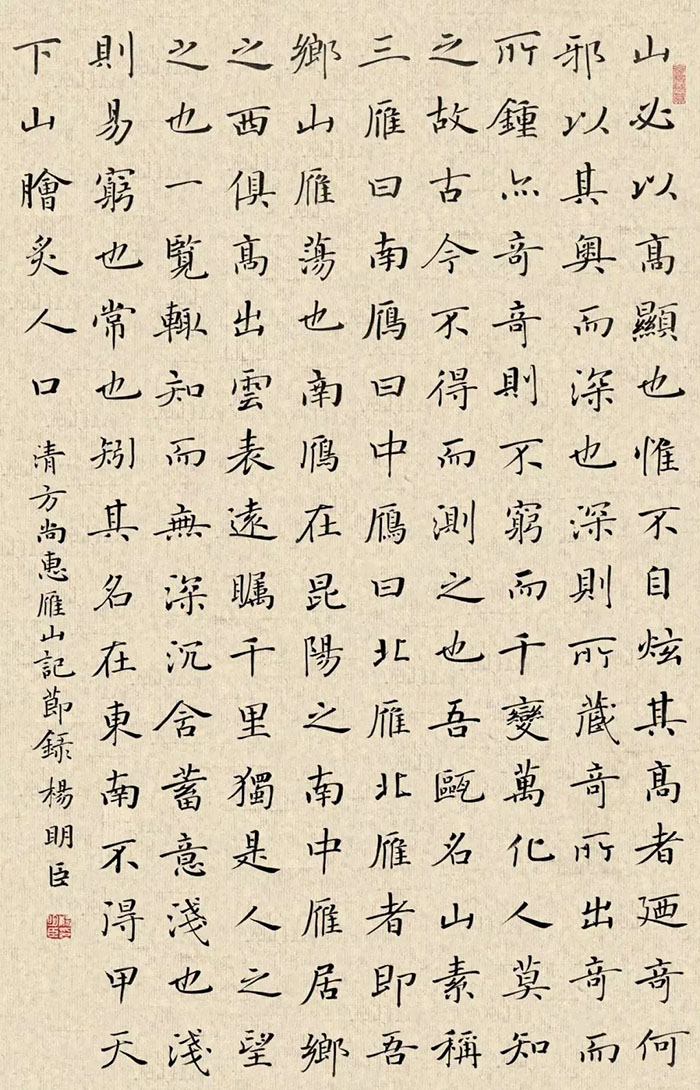 山必以高顯也惟不自炫其高者廼奇何
邪以其奧而深也深則所藏奇所出奇而
所鍾亦奇奇則不窮而千變萬化人莫知
之故古今不得而測之也吾甌名山素稱
三雁曰南鴈曰中鴈曰北雁北雁者即吾
鄉山雁蕩也南鴈在昆陽之南中雁居鄉
之西俱高出雲表遠矚千里獨是人之望
之也一覽輙知而無深沉含蓄意淺也淺
則易窮也常也矧其名在東南不得甲天
下山膾炙人口
清方尚惠雁山記節錄楊明臣